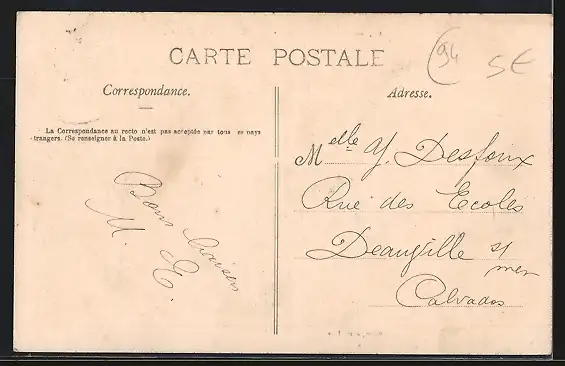 CARTE POSTALE
94
5€
Correspondance.
Adresse.
La Correspondance au recto n'est pas acceptée par tous les pays
trangers. (Se renseigner à la Poste.)
Melle Y. Desfoux
Rue des Ecoles
Deauville s/
mer
Calvados
Bons baisers
M. E.